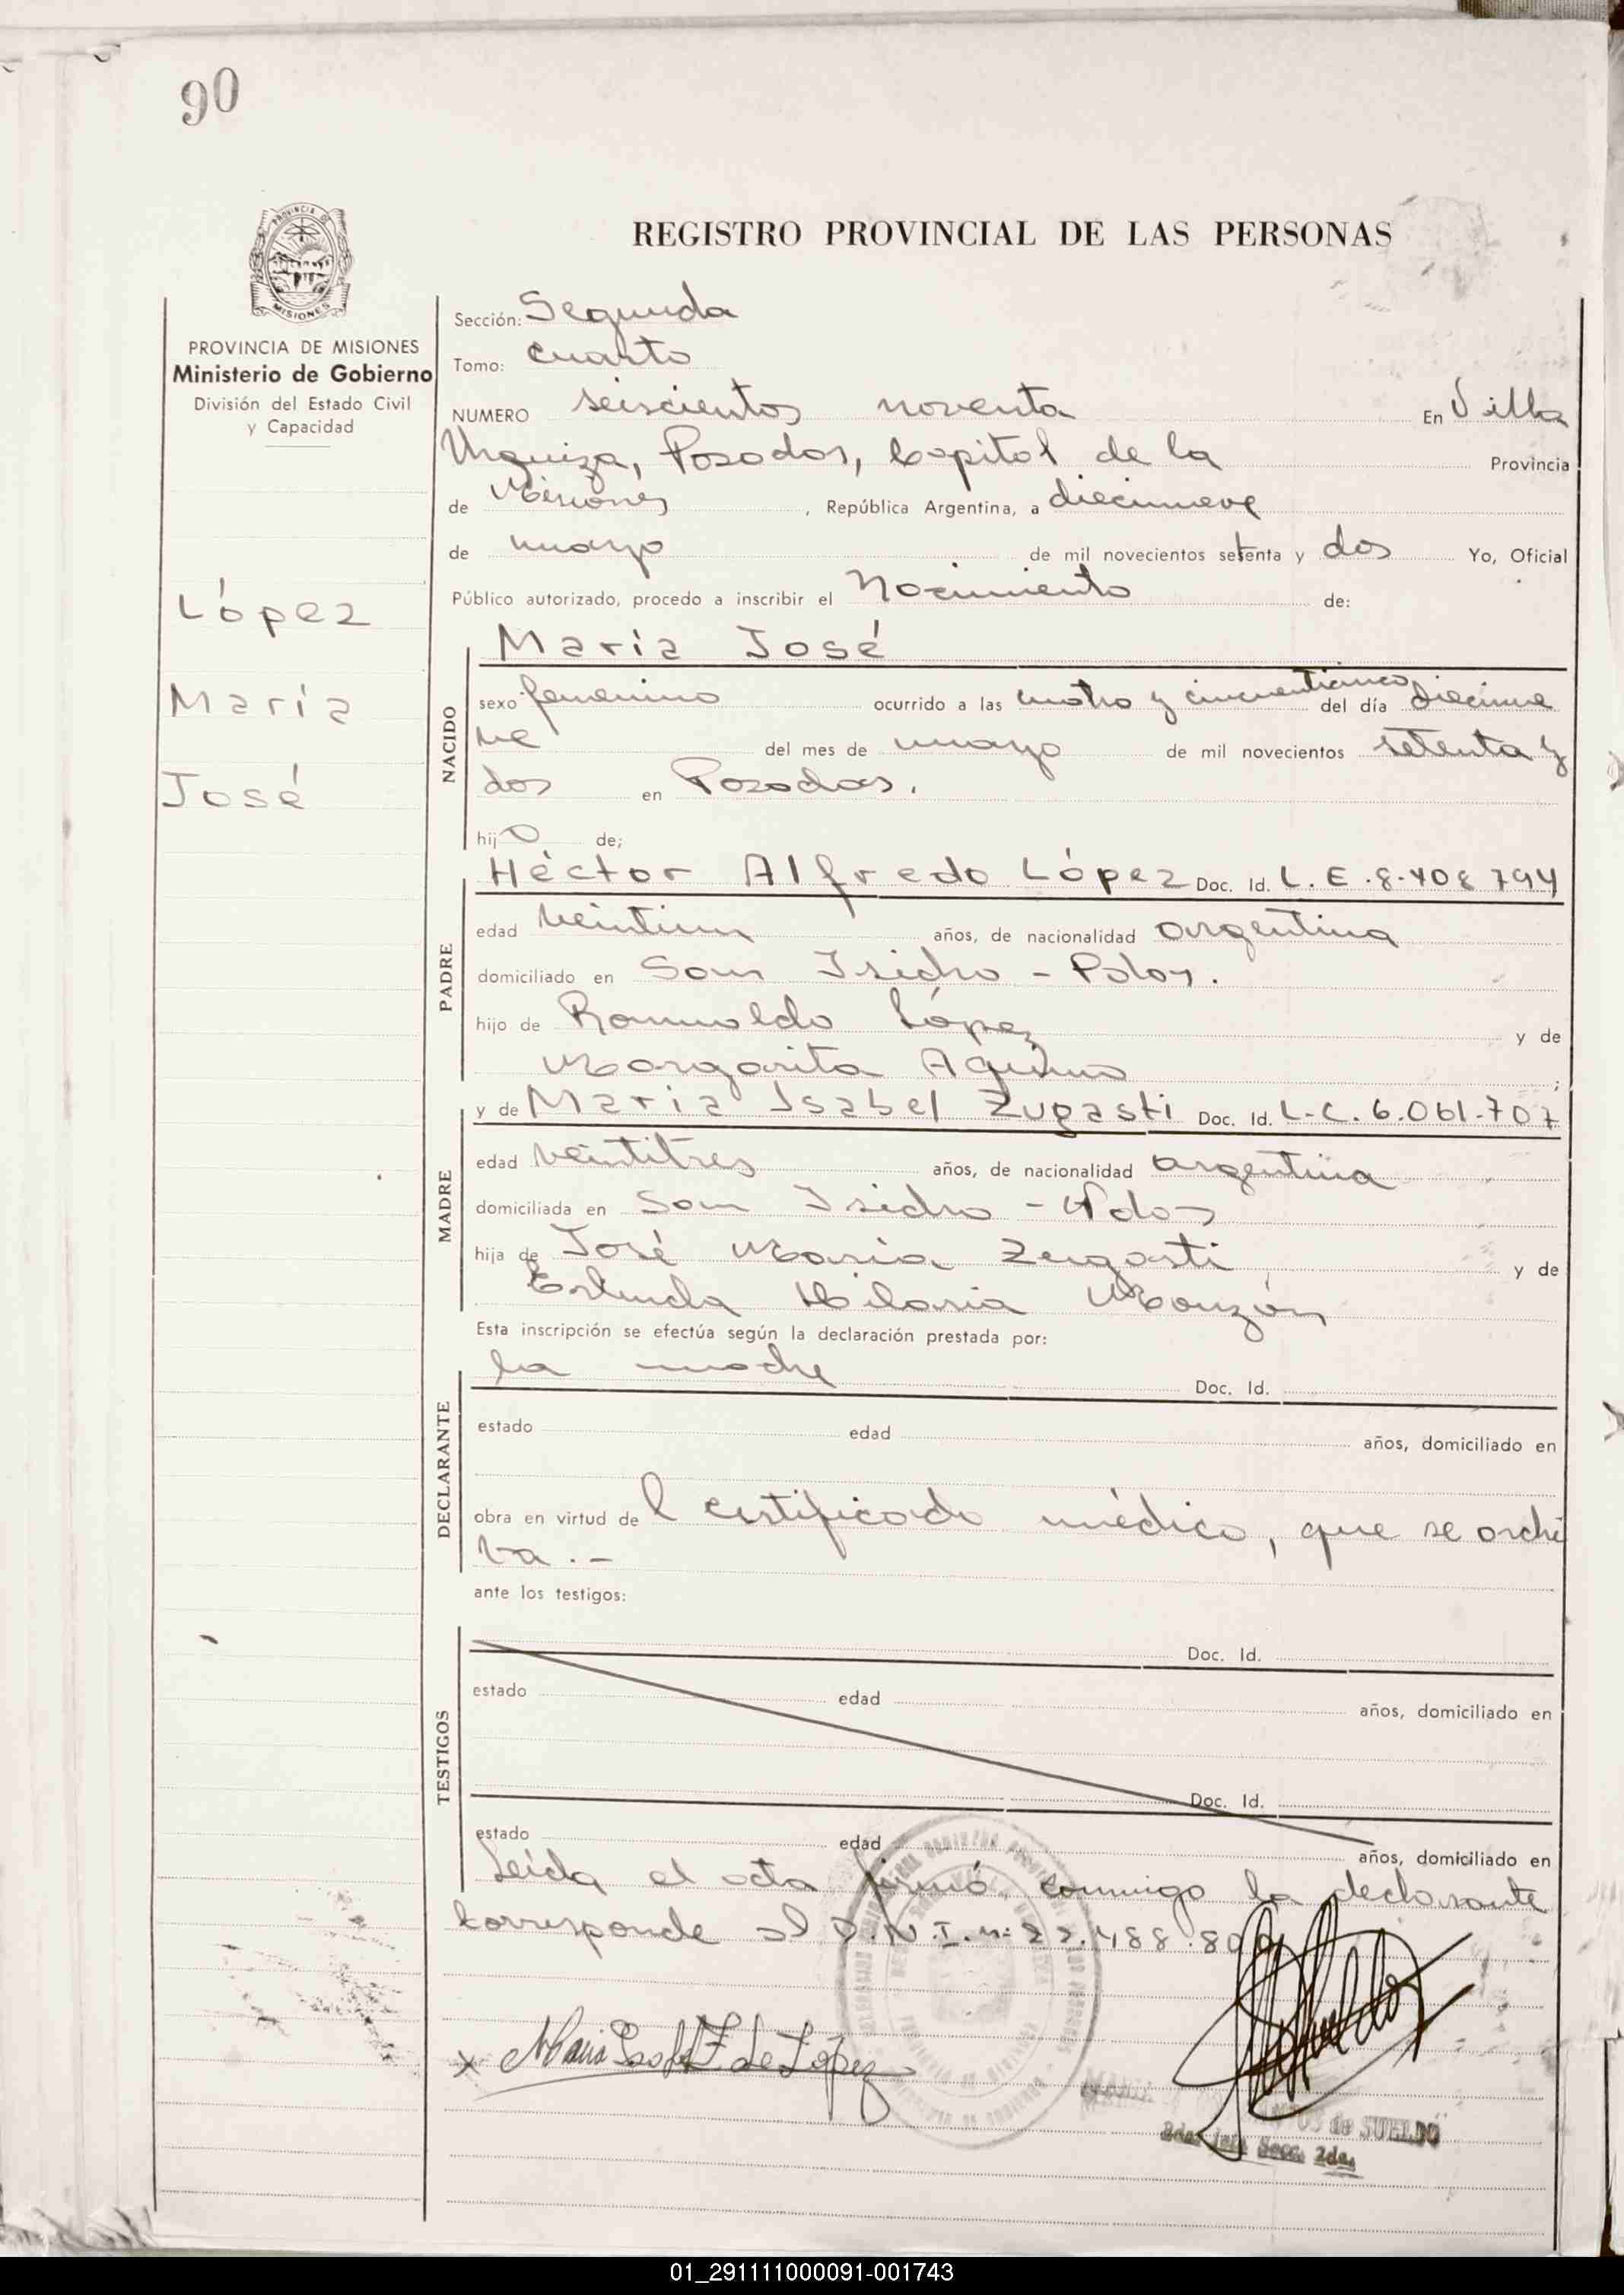 90
PROVINCIA DE
MISIONES
REGISTRO PROVINCIAL DE LAS PERSONAS
PROVINCIA DE MISIONES
Ministerio de Gobierno
División del Estado Civil
y Capacidad
López
María
José
Sección: Segunda
Tomo: Cuarto
NUMERO seiscientos noventa En Villa
Urquiza, Posadas, Capital de la Provincia
de Misiones, República Argentina, a diecinueve
de mayo de mil novecientos setenta y dos Yo, Oficial
Público autorizado, procedo a inscribir el Nacimiento de:
NACIDO
María José
sexo femenino ocurrido a las cuatro y cincuenticinco del día diecinue
ve del mes de mayo de mil novecientos setenta y
dos en Posadas.
hija de;
PADRE
Héctor Alfredo López Doc. Id. L.E.8.408 794
edad veintiun años, de nacionalidad argentina
domiciliado en San Isidro - Pdas.
hijo de Romualdo López y de
Margarita Aquino ;
MADRE
y de María Isabel Zugasti Doc. Id. L.C.6.061.707
edad veintitres años, de nacionalidad argentina
domiciliada en San Isidro - Pdas
hija de José María Zugasti y de
Erlinda Hilaria Monzón
Esta inscripción se efectúa según la declaración prestada por:
DECLARANTE
la madre Doc. Id.
estado edad años, domiciliado en
obra en virtud de l certificado médico, que se archi
va.-
ante los testigos:
TESTIGOS
Doc. Id.
estado edad años, domiciliado en
Doc. Id.
estado edad años, domiciliado en
Leída el acta firmó conmigo la declarante
Corresponde al D.N.I. nº 22.488.800
x María Isabel Z de López
de SUELDO
Secc. 2da.
01_291111000091-001743